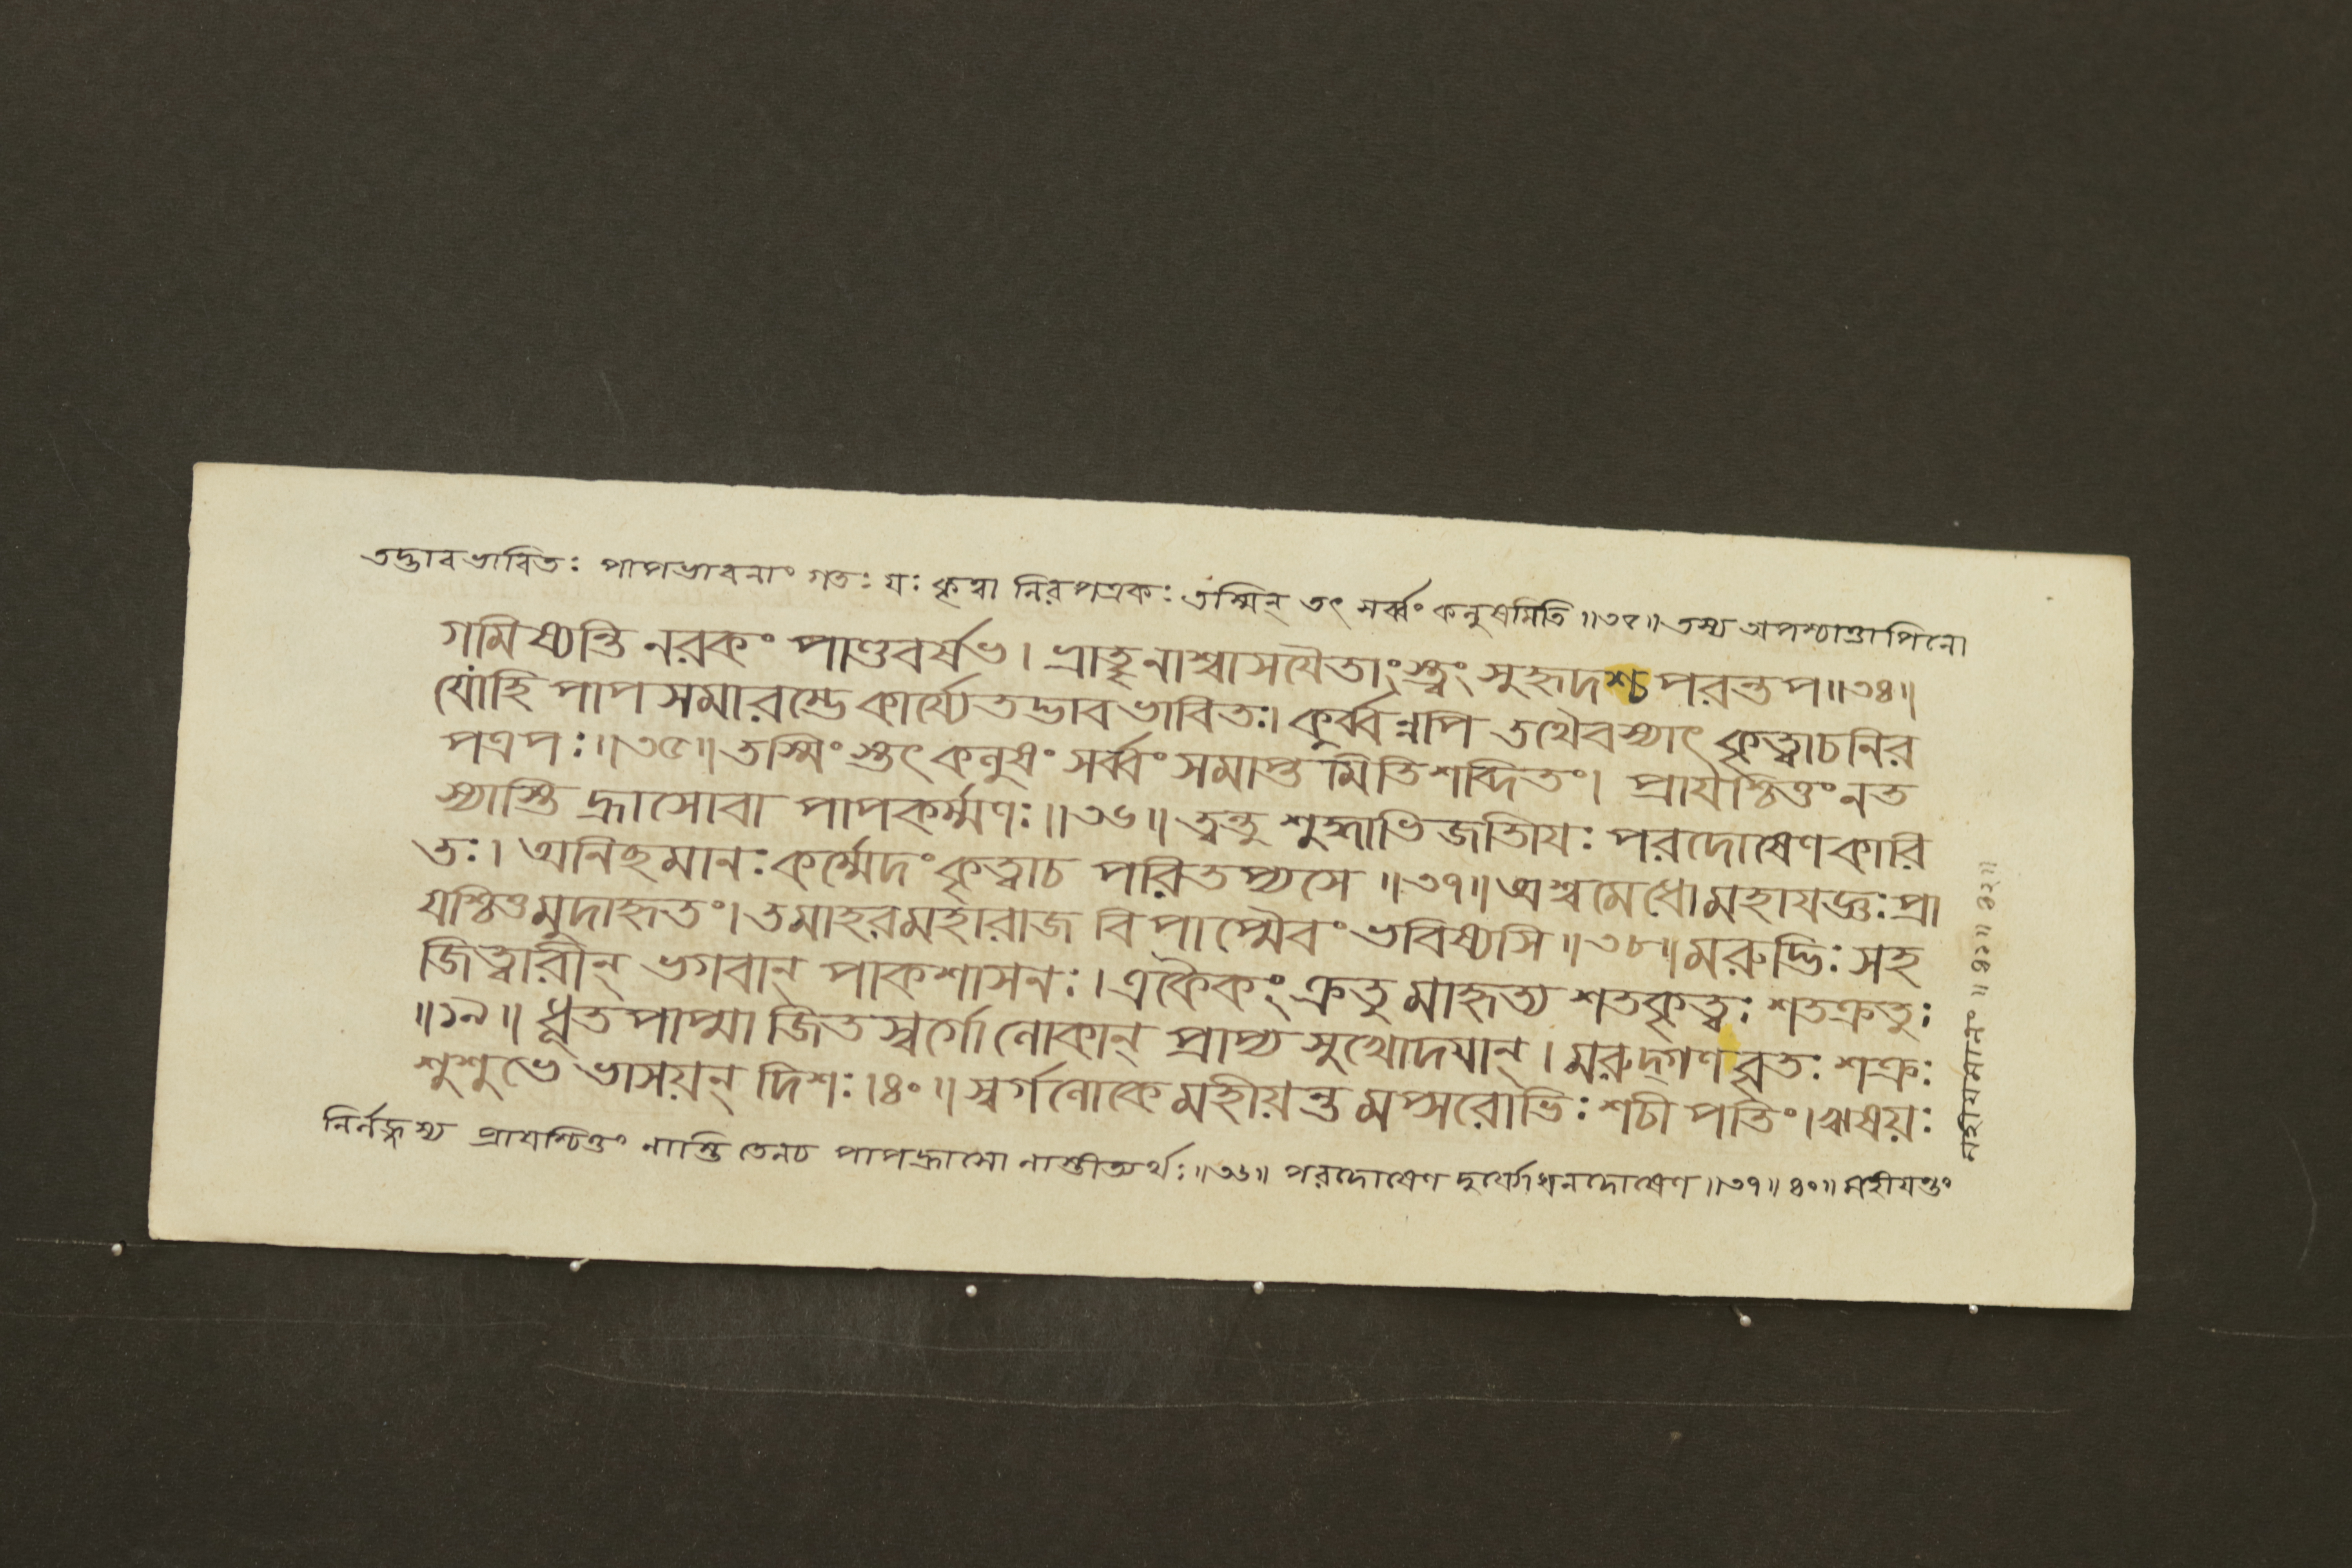 তদ্ভাবভাবিতঃ পাপভাবনাং গতঃ যঃ কৃত্বা নিরপত্রকঃ তস্মিন্ তৎ সর্ব্বং কলুষমিতি॥৩৫॥তস্য অপশ্চাত্তাপিনো
গমিষ্যন্তি নরকং পাণ্ডবর্ষভ। ভ্রাতৄনাশ্বাসযৈতাংস্ত্বং সুহৃদশ্চ পরন্তপ॥৩৪॥
যোহি পাপসমারম্ভে কার্য্যে তদ্ভাবভাবিতঃ। কুর্ব্বন্নপি তথৈবস্যাৎ কৃত্বাচনির
পত্রপঃ॥৩৫॥তস্মিংস্তৎ কলুষং সর্ব্বং সমাপ্তমিতিশব্দিতং। প্রাযশ্চিত্তং নত
স্যাস্তি হ্রাসোবা পাপকর্ম্মণঃ॥৩৬॥ ত্বন্তু শুক্লাভিজাতিযঃ পরদোষেণকারি
তঃ। অনিছমানঃ কর্ম্মেদং কৃত্বাচ পরিতপ্যসে॥৩৭॥অশ্বমেধোমহাযজ্ঞঃ প্রা
যশ্চিত্তমুদাহৃতং। তমাহরমহারাজ বিপাপ্মৈবং ভবিষ্যসি॥৩৮॥মরুদ্ভিঃ সহ
জিত্বারীন্ ভগবান্ পাকশাসনঃ। একৈকং ক্রতুমাহৃত্য শতকৃত্বঃ শতক্রতুঃ
॥১৯॥ ধূতপাপ্মা জিতস্বর্গো লোকান্ প্রাপ্য সুখোদযান্। মরুদ্গণবৃতঃ শক্রঃ
শুশুভে ভাসয়ন্ দিশঃ।৪০॥ স্বর্গলোকে মহীয়ন্তমপ্সরোভিঃ শচীপতিং। ঋষয়ঃ
নির্লজ্জস্য প্রাযশ্চিত্তং নাস্তি তেনচ পাপহ্রাসো নাস্তীত্যর্থঃ॥৩৬॥ পরদোষেণ দুর্যোধনদোষেণ॥৩৭॥৪০॥ মহীযন্তং
মহীযমানং॥৪১॥৪২॥